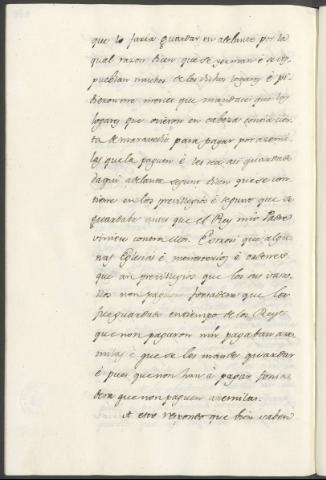 que lo faria guardar en adelante por la
qual razon dicen que se yerman è se des
pueblan muchos de los dichos logares è pi
dieronme merced que mandase que los
logares que ovieron en cabeza cierta con
ta de maravedis para pagar por acemi
las que la paguen è les sea asi guardado de
daqui adelante segunt dicen que se con
tiene en los previllegios è segunt que se
guardaba antes que el Rey mio Padre
viniese contra ellos. Otrosi que algu
nas Eglesias è monesterios è ordenes
que an previllegios que los sus vasa
llos non paguen fonsadera que les
fue guardado en tiempo de los Reyes
que non pagaron nin pagaban ace
milas è que se les mande guardar
è pues que non han à pagar fonsa
dera que non paguen acemilas.
A esto respondo que bien saben